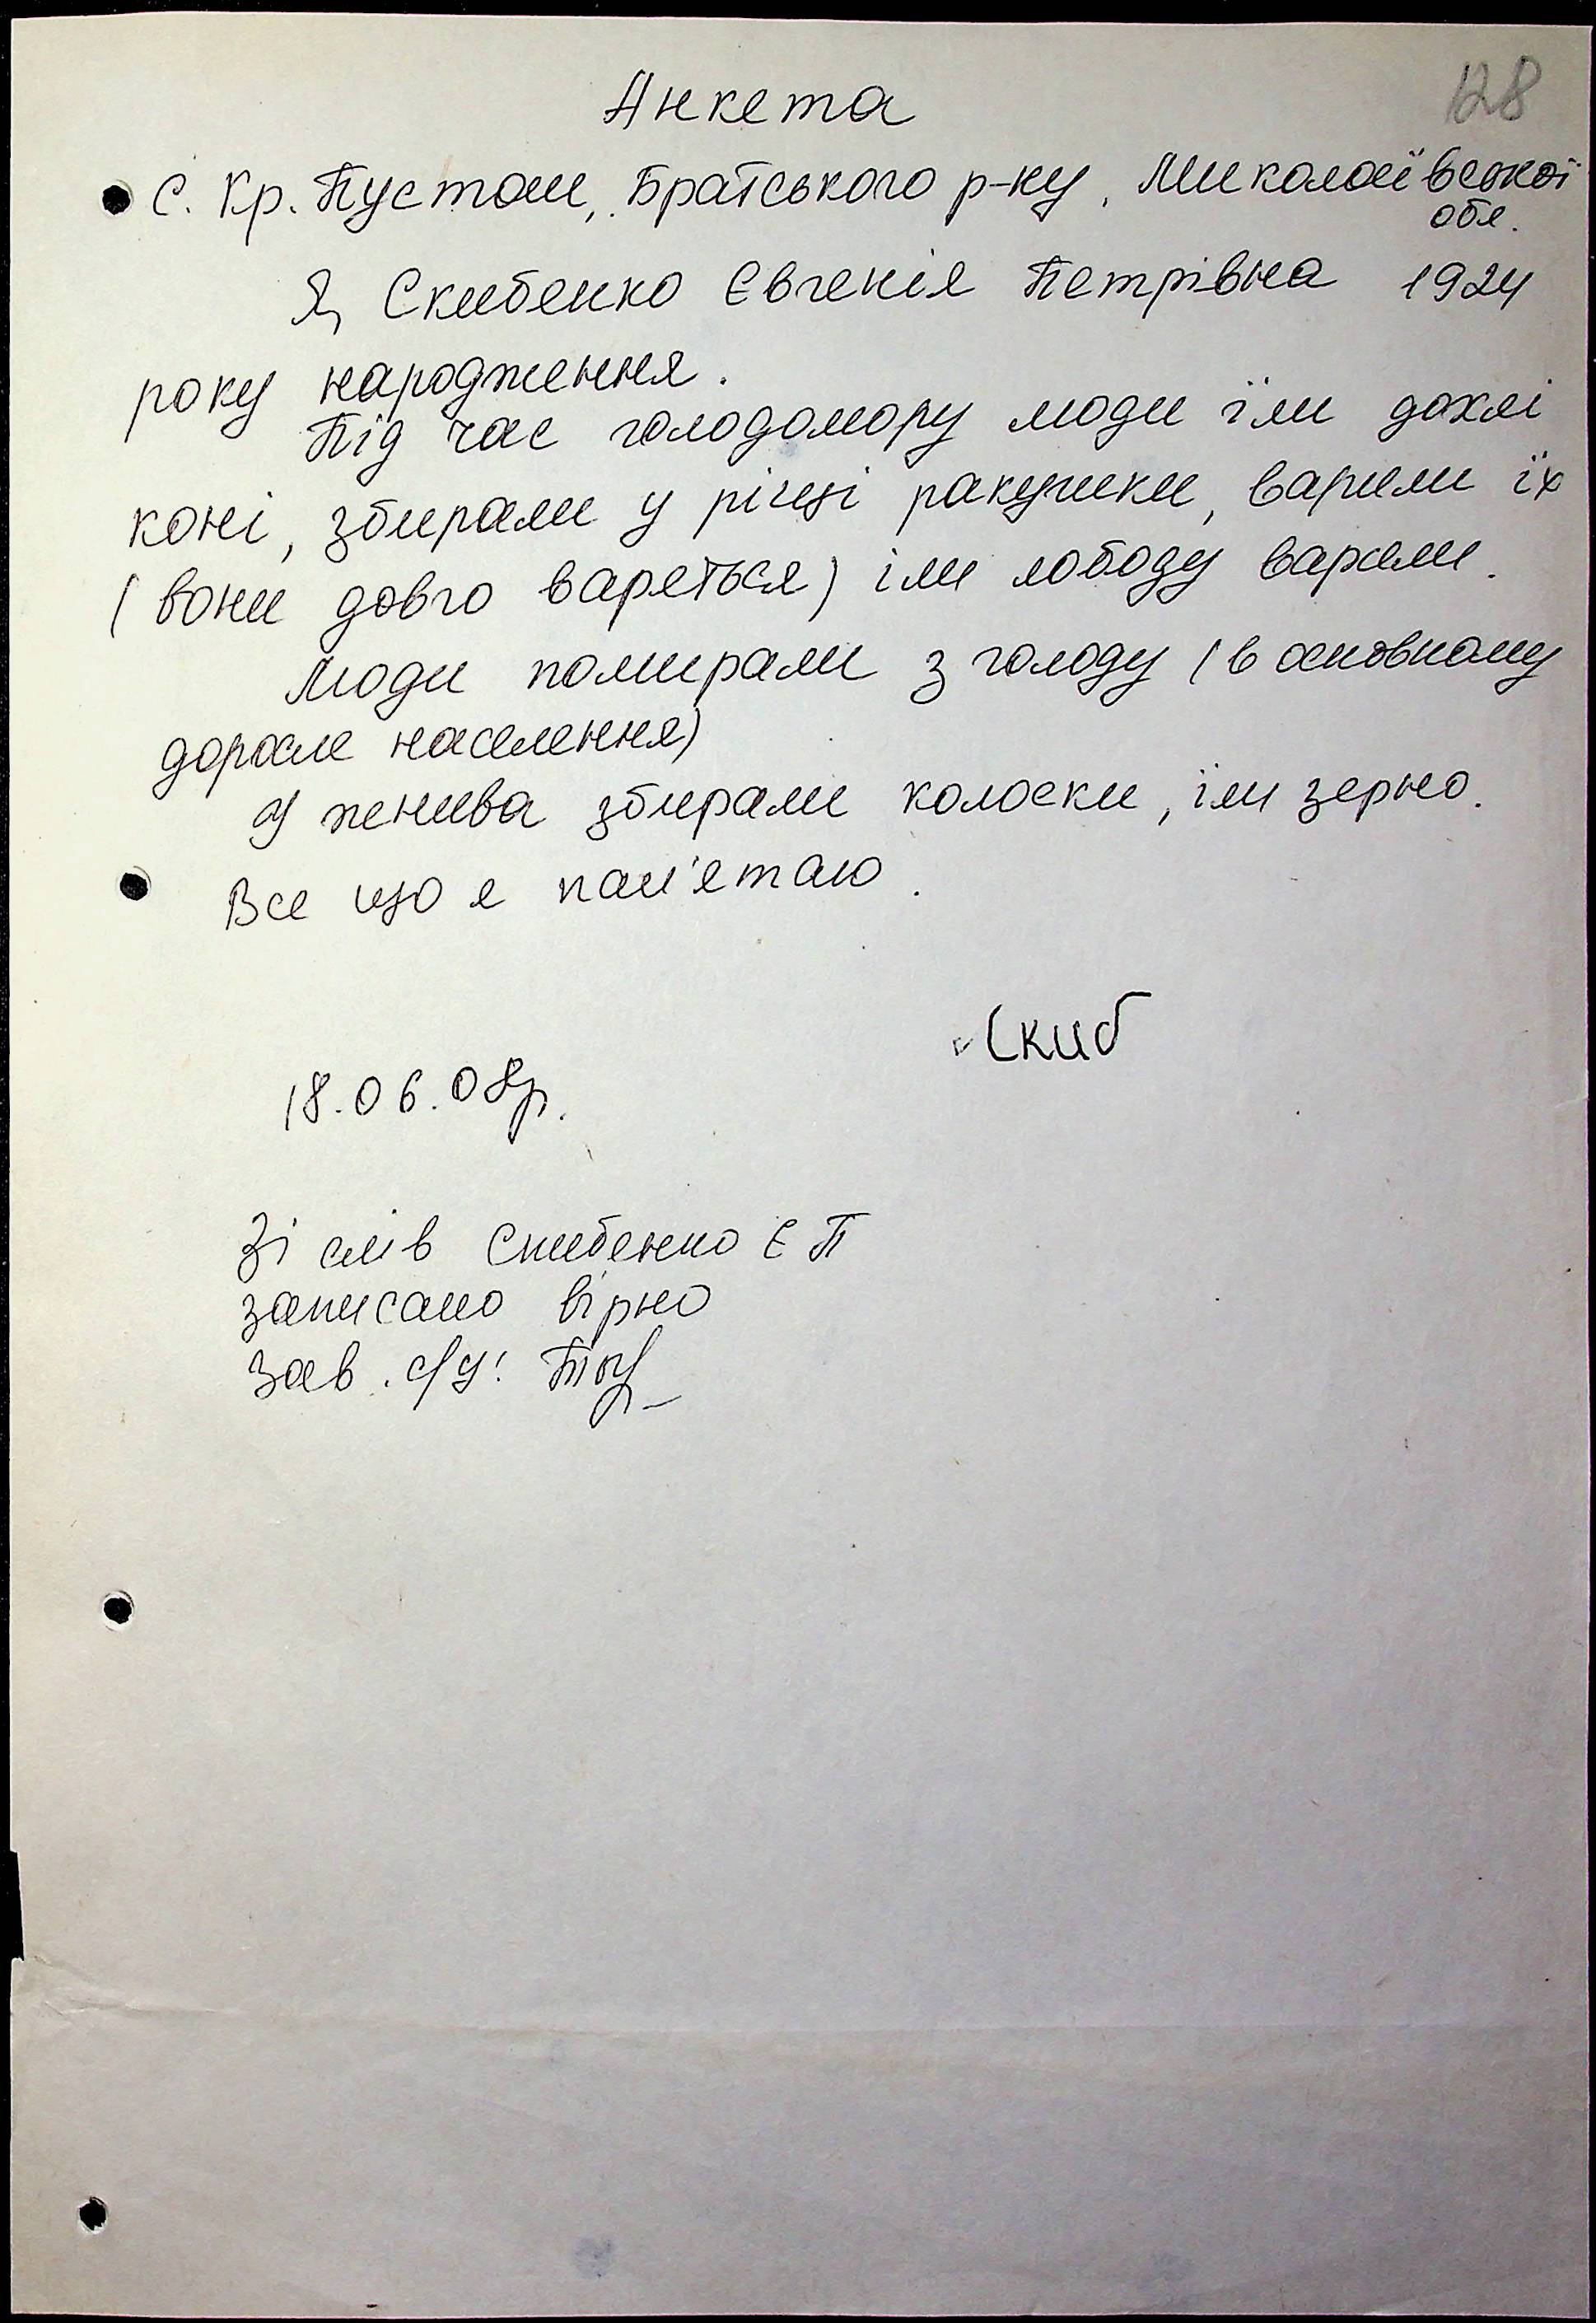 128
Анкета
с. Кр. Пустош, Братського р-ку, Миколаївської
обл.
Я, Скибенко Євгенія Петрівна 1924
року народження.
Під час голодомору люди їли дохлі
коні, збирали у річці ракушки, варили їх
(вони довго варяться) їли лободу варили.
Люди помирали з голоду (в основному
доросле населення)
У жнива збирали колоски, їли зерно.
Все що я пам'ятаю.
Скиб
18.06.08р.
Зі слів Скибенко Є П
записано вірно
Зав. с/у: